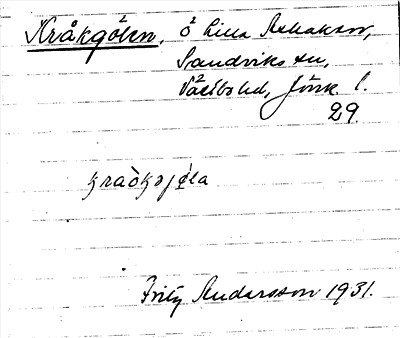 Kråkgölen, ö Lilla Askaken,
Sandviks sn,
Västbo hd, Jönk. l.
29.
kraòkɔjø̀la
Fritz Andersson 1931.